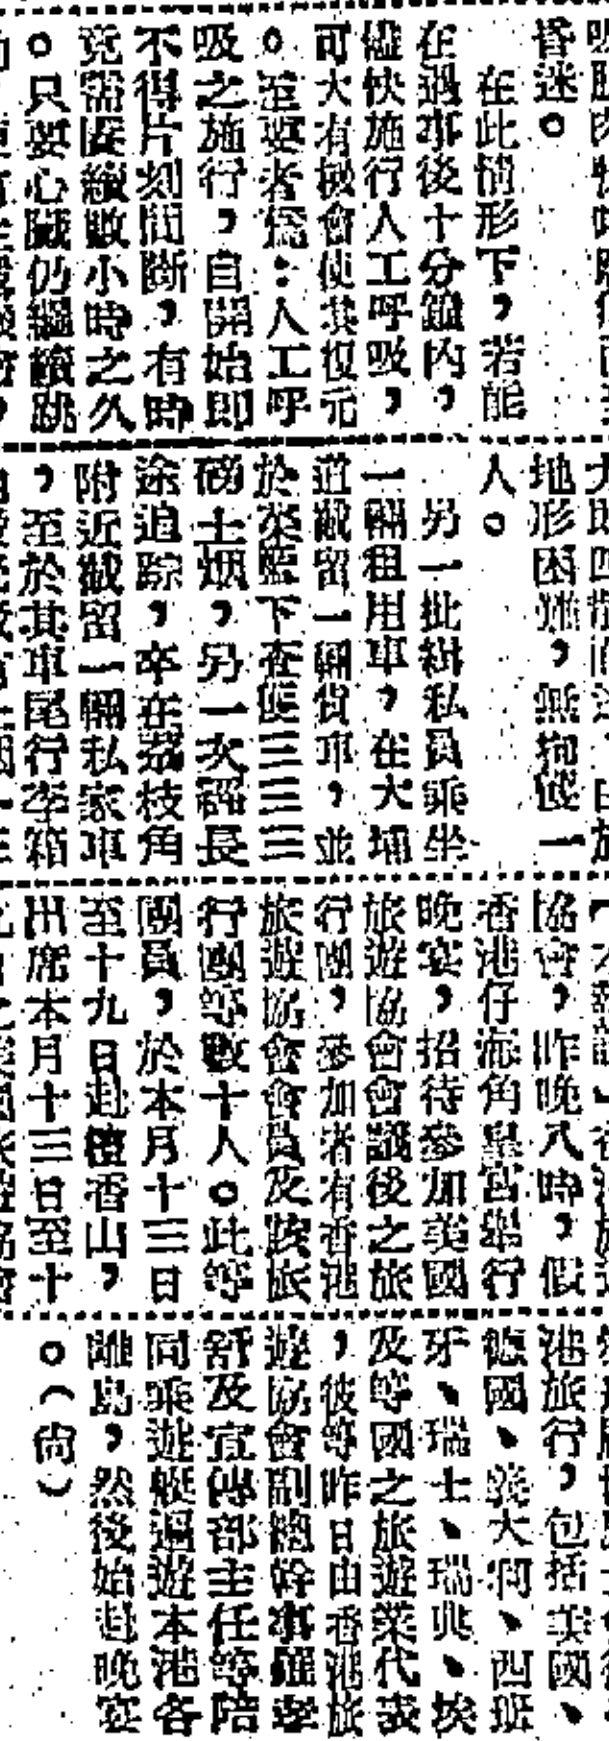 昏迷。
在此情形下，若能
在遇事後十分鐘內，
儘快施行人工呼吸，
可大有機會使其復元
。至要者爲：人工呼
吸之施行，自開始即
不得片刻間斷，有時
竟需繼續數小時之久
。只要心臟仍繼續跳
地形困難，無拘獲一
人。
另一批緝私員乘坐
一輛租用車，在大埔
道截留一輛貨車，並
於菜籃下查獲三三三
磅土烟，另一次經長
途追踪，卒在荔枝角
附近截留一輛私家車
，至於其車尾行李箱
協會，昨晚八時，假
香港仔海角皇宮舉行
晚宴，招待參加美國
旅遊協會會議後之旅
行團，參加者有香港
旅遊協會會員及該旅
行團等數十人。此等
團員，於本月十三日
至十九日赴檀香山，
出席本月十三日至十
港旅行，包括美國、
德國、義大利、西班
牙、瑞士、瑞典、埃
及等國之旅遊業代表
，彼等昨日由香港旅
遊協會副總幹事羅孝
舒及宣傳部主任等陪
同乘遊艇遍遊本港各
離島，然後始赴晚宴
。（尚）